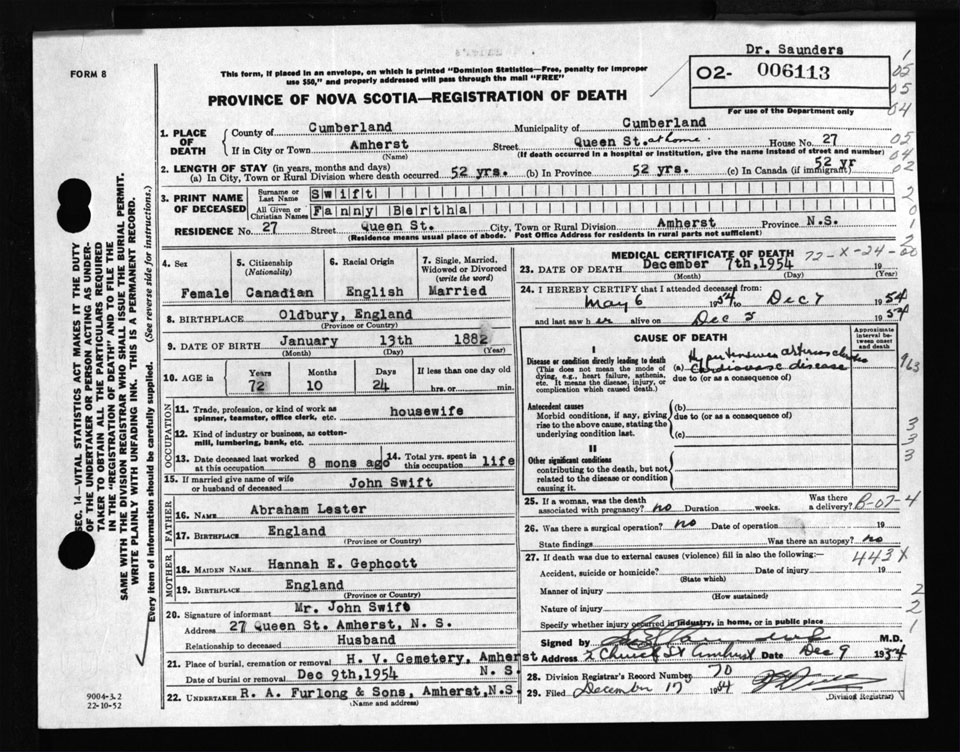 Dr. Saunders
FORM 8
This form, if placed in an envelope, on which is printed "Dominion Statistics—Free, penalty for improper
use $50," and properly addressed will pass through the mail "FREE"
02- 006113
For use of the Department only
PROVINCE OF NOVA SCOTIA—REGISTRATION OF DEATH
1. PLACE OF DEATH
County of Cumberland Municipality of Cumberland
If in City or Town Amherst Street Queen St. at home House No. 27
(Name) (If death occurred in a hospital or institution, give the name instead of street and number)
2. LENGTH OF STAY (in years, months and days)
(a) In City, Town or Rural Division where death occurred 52 yrs. (b) In Province 52 yrs. (c) In Canada (if immigrant) 52 yr
3. PRINT NAME OF DECEASED
Surname or Last Name Swift
All Given or Christian Names Fanny Bertha
RESIDENCE No. 27 Street Queen St. City, Town or Rural Division Amherst Province N.S.
(Residence means usual place of abode. Post Office Address for residents in rural parts not sufficient)
4. Sex 5. Citizenship 6. Racial Origin 7. Single, Married,
(Nationality) Widowed or Divorced
(write the word)
Female Canadian English Married
8. BIRTHPLACE Oldbury, England
(Province or Country)
9. DATE OF BIRTH January 13th 1882
(Month) (Day) (Year)
10. AGE in Years Months Days If less than one day old
72 10 24 hrs. or min.
OCCUPATION
11. Trade, profession, or kind of work as
spinner, teamster, office clerk, etc. housewife
12. Kind of industry or business, as cotton-
mill, lumbering, bank, etc.
13. Date deceased last worked
at this occupation 8 mons ago
14. Total yrs. spent in
this occupation life
15. If married give name of wife
or husband of deceased John Swift
FATHER
16. NAME Abraham Lester
17. BIRTHPLACE England
(Province or Country)
MOTHER
18. MAIDEN NAME Hannah E. Gephcott
19. BIRTHPLACE England
(Province or Country)
20. Signature of informant Mr. John Swift
Address 27 Queen St. Amherst, N. S.
Relationship to deceased Husband
21. Place of burial, cremation or removal H. V. Cemetery, Amherst
N. S.
Date of burial or removal Dec 9th, 1954
22. UNDERTAKER R. A. Furlong & Sons, Amherst, N.S.
(Name and address)
MEDICAL CERTIFICATE OF DEATH
72-X-24-00
23. DATE OF DEATH December 7th, 1954 19
(Month) (Day) (Year)
24. I HEREBY CERTIFY that I attended deceased from:
May 6 1954 to Dec 7 1954
and last saw her alive on Dec 5 1954
CAUSE OF DEATH
Approximate interval between onset and death
Disease or condition directly leading to death
(This does not mean the mode of
dying, e.g., heart failure, asthenia,
etc. It means the disease, injury, or
complication which caused death.)
(a) cardiovasc disease
due to (or as a consequence of)
Antecedent causes
Morbid conditions, if any, giving
rise to the above cause, stating the
underlying condition last.
(b)
due to (or as a consequence of)
(c)
II
Other significant conditions
contributing to the death, but not
related to the disease or condition
causing it.
25. If a woman, was the death
associated with pregnancy? no Duration weeks.
Was there
a delivery? B-07-4
26. Was there a surgical operation? no Date of operation 19
State findings Was there an autopsy? no
27. If death was due to external causes (violence) fill in also the following:—
443X
Accident, suicide or homicide? Date of injury 19
(State which)
Manner of injury
(How sustained)
Nature of injury
Specify whether injury occurred in industry, in home, or in public place
Signed by M.D.
Address 2 Church St Amherst Date Dec 9 1954
28. Division Registrar's Record Number 70
29. Filed December 17 1954
(Division Registrar)
SEC. 14—VITAL STATISTICS ACT MAKES IT THE DUTY
OF THE UNDERTAKER OR PERSON ACTING AS UNDER-
TAKER TO OBTAIN ALL THE PARTICULARS REQUIRED
IN THE "REGISTRATION OF DEATH" AND TO FILE THE
SAME WITH THE DIVISION REGISTRAR WHO SHALL ISSUE THE BURIAL PERMIT.
WRITE PLAINLY WITH UNFADING INK. THIS IS A PERMANENT RECORD.
Every item of information should be carefully supplied. (See reverse side for instructions.)
9004-3.2
22-10-52